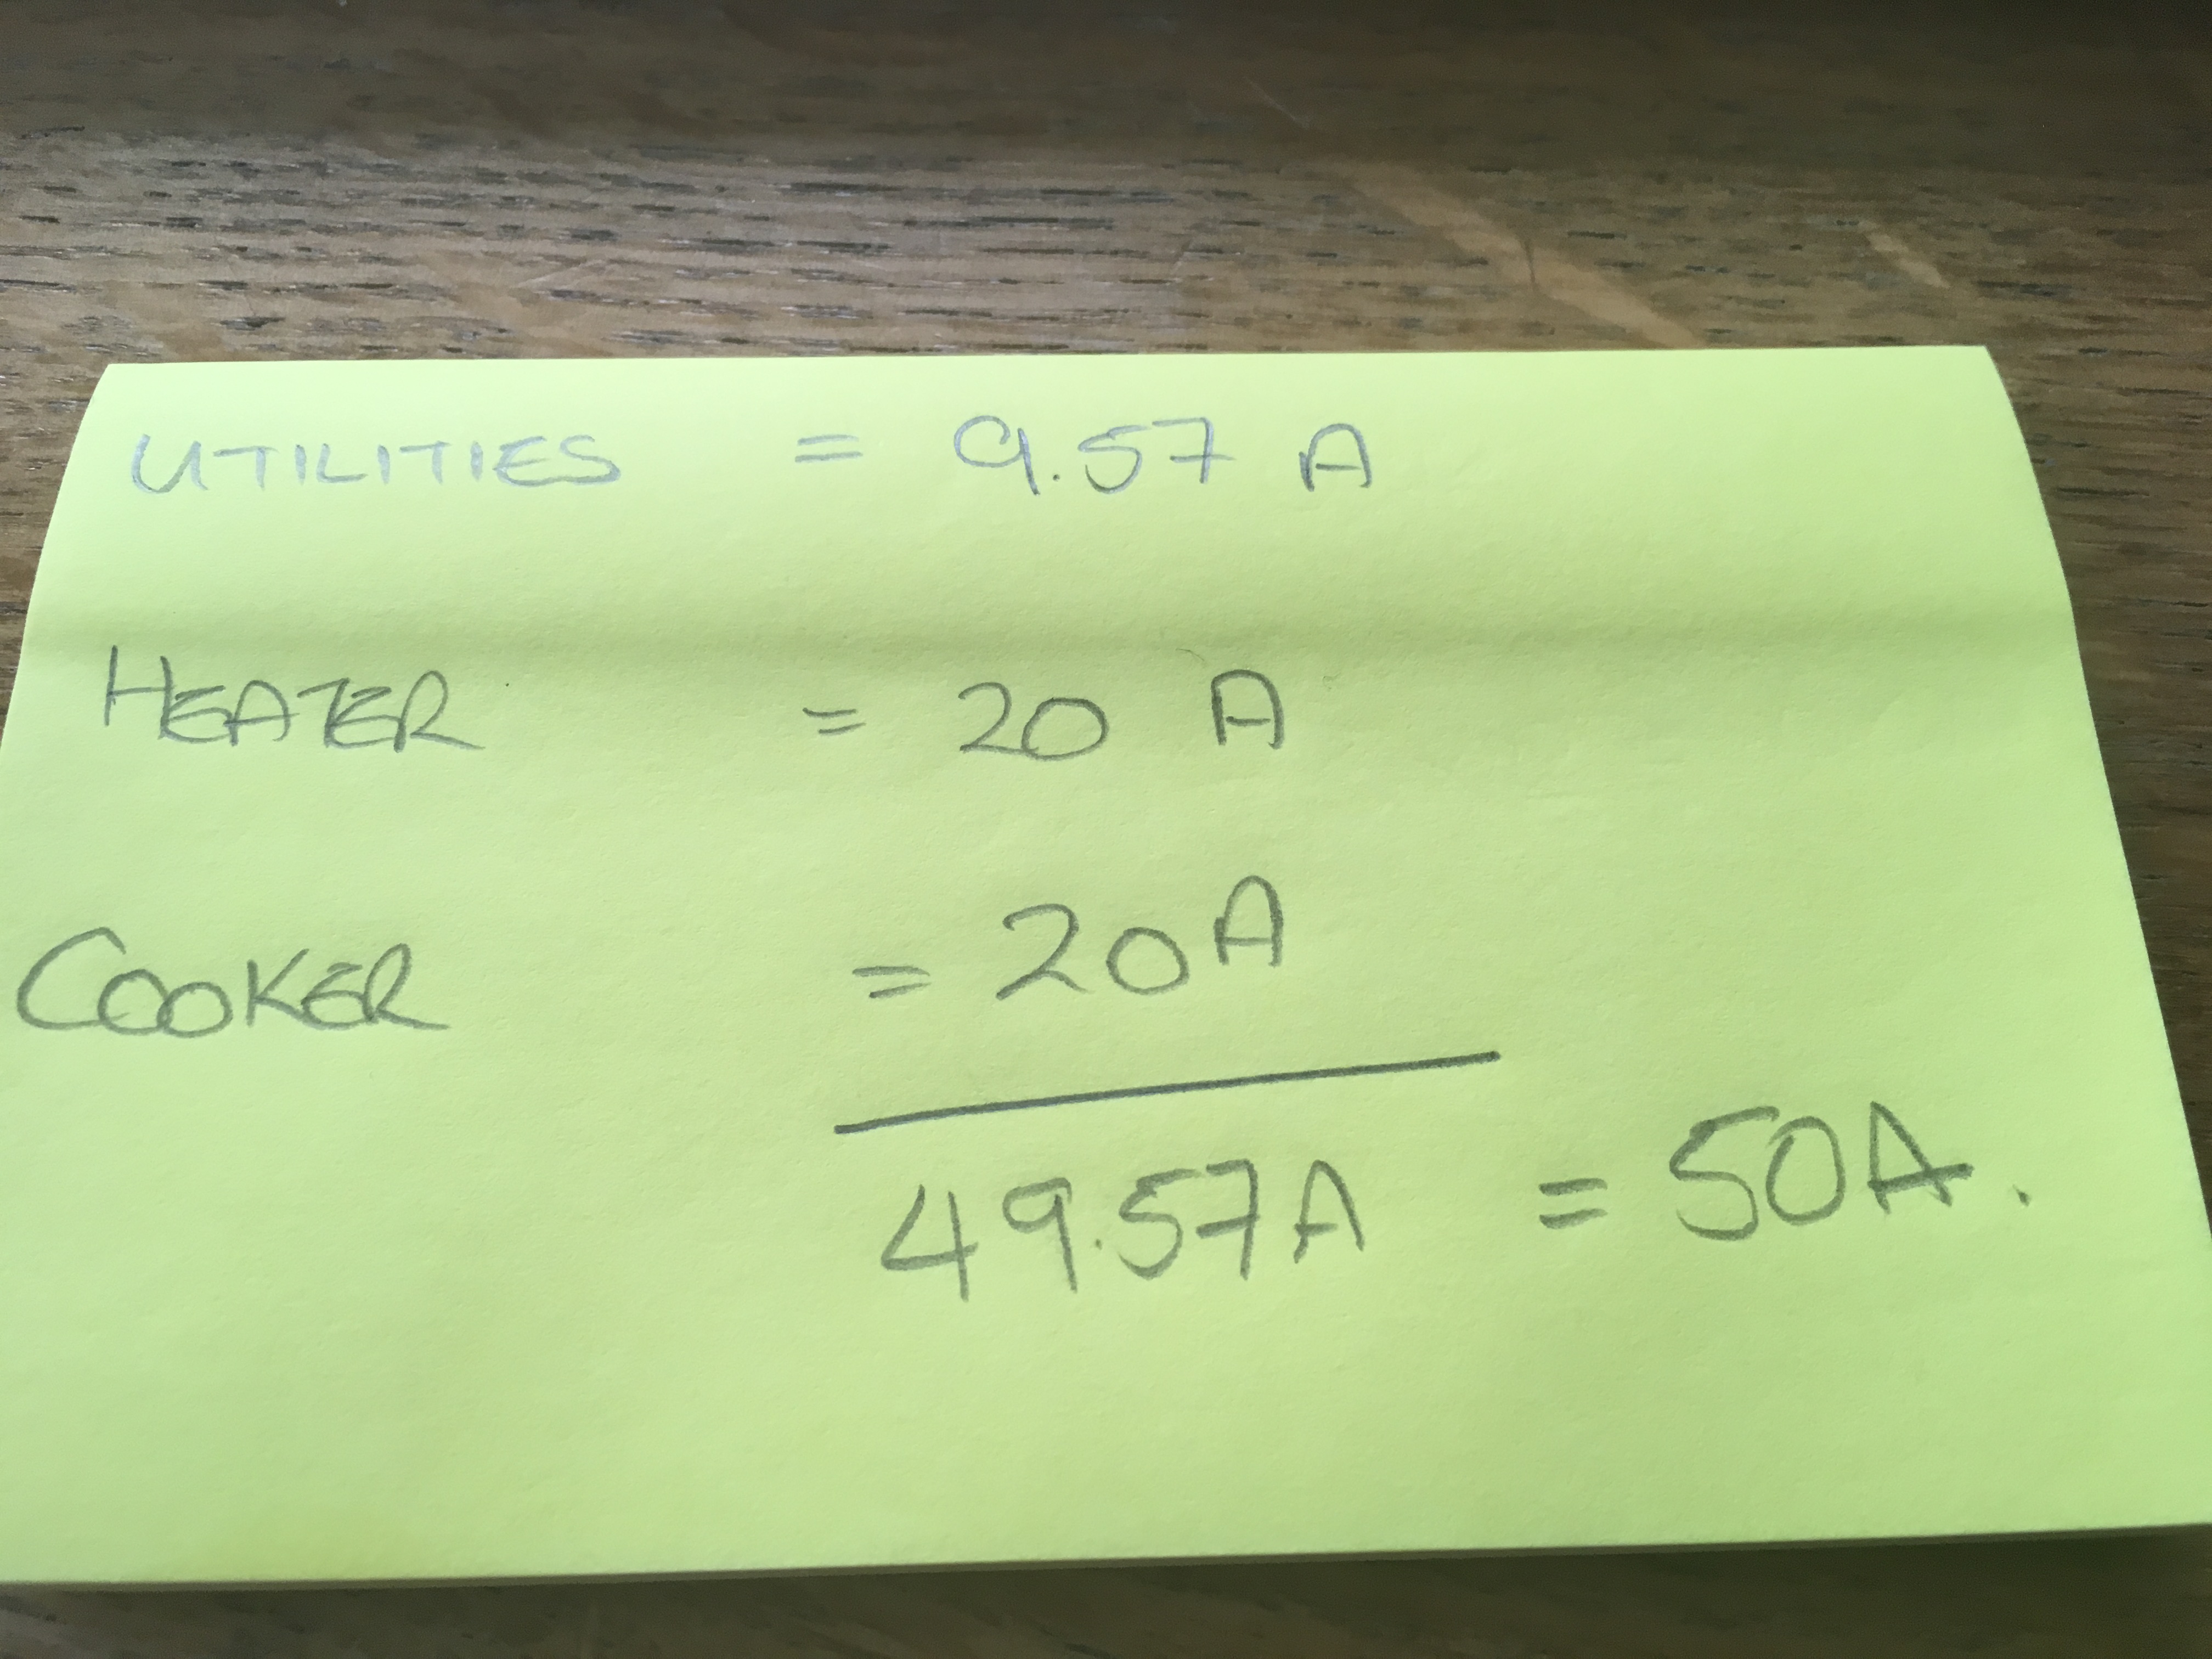 UTILITIES = 9.57 A
HEATER = 20 A
COOKER = 20A
49.57A = 50A.